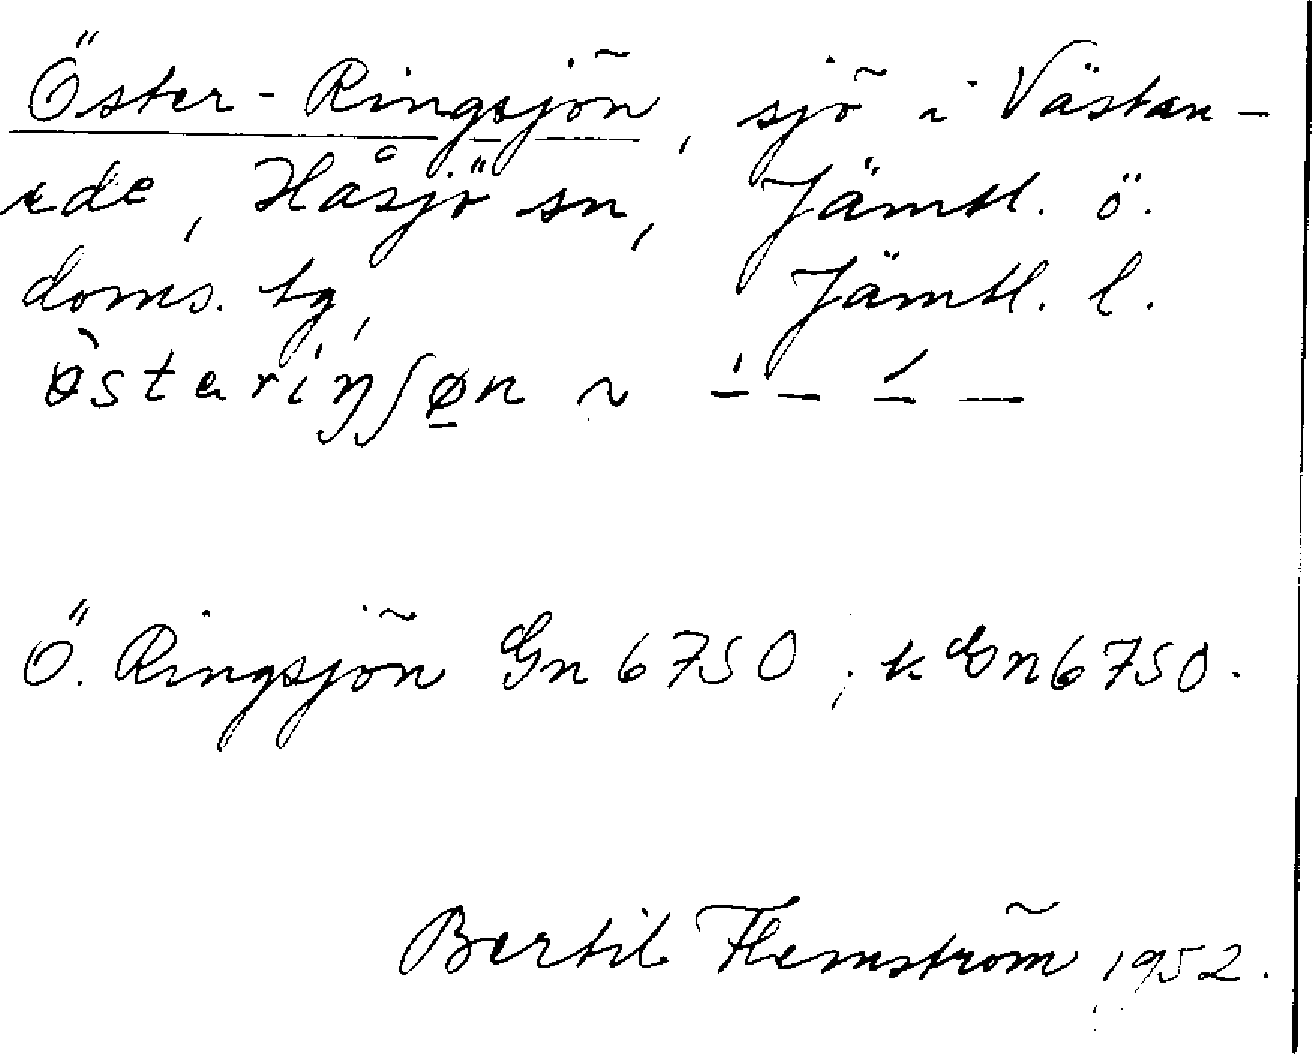 Öster-Ringsjön, sjö i Västan-
ede, Håsjö sn, Jämtl. ö.
doms. tg, Jämtl. l.
ö̀starıŋʃøn ~
Ö. Ringsjön Gn 6750; k Gn 6750.
Bertil Flemström 1952.